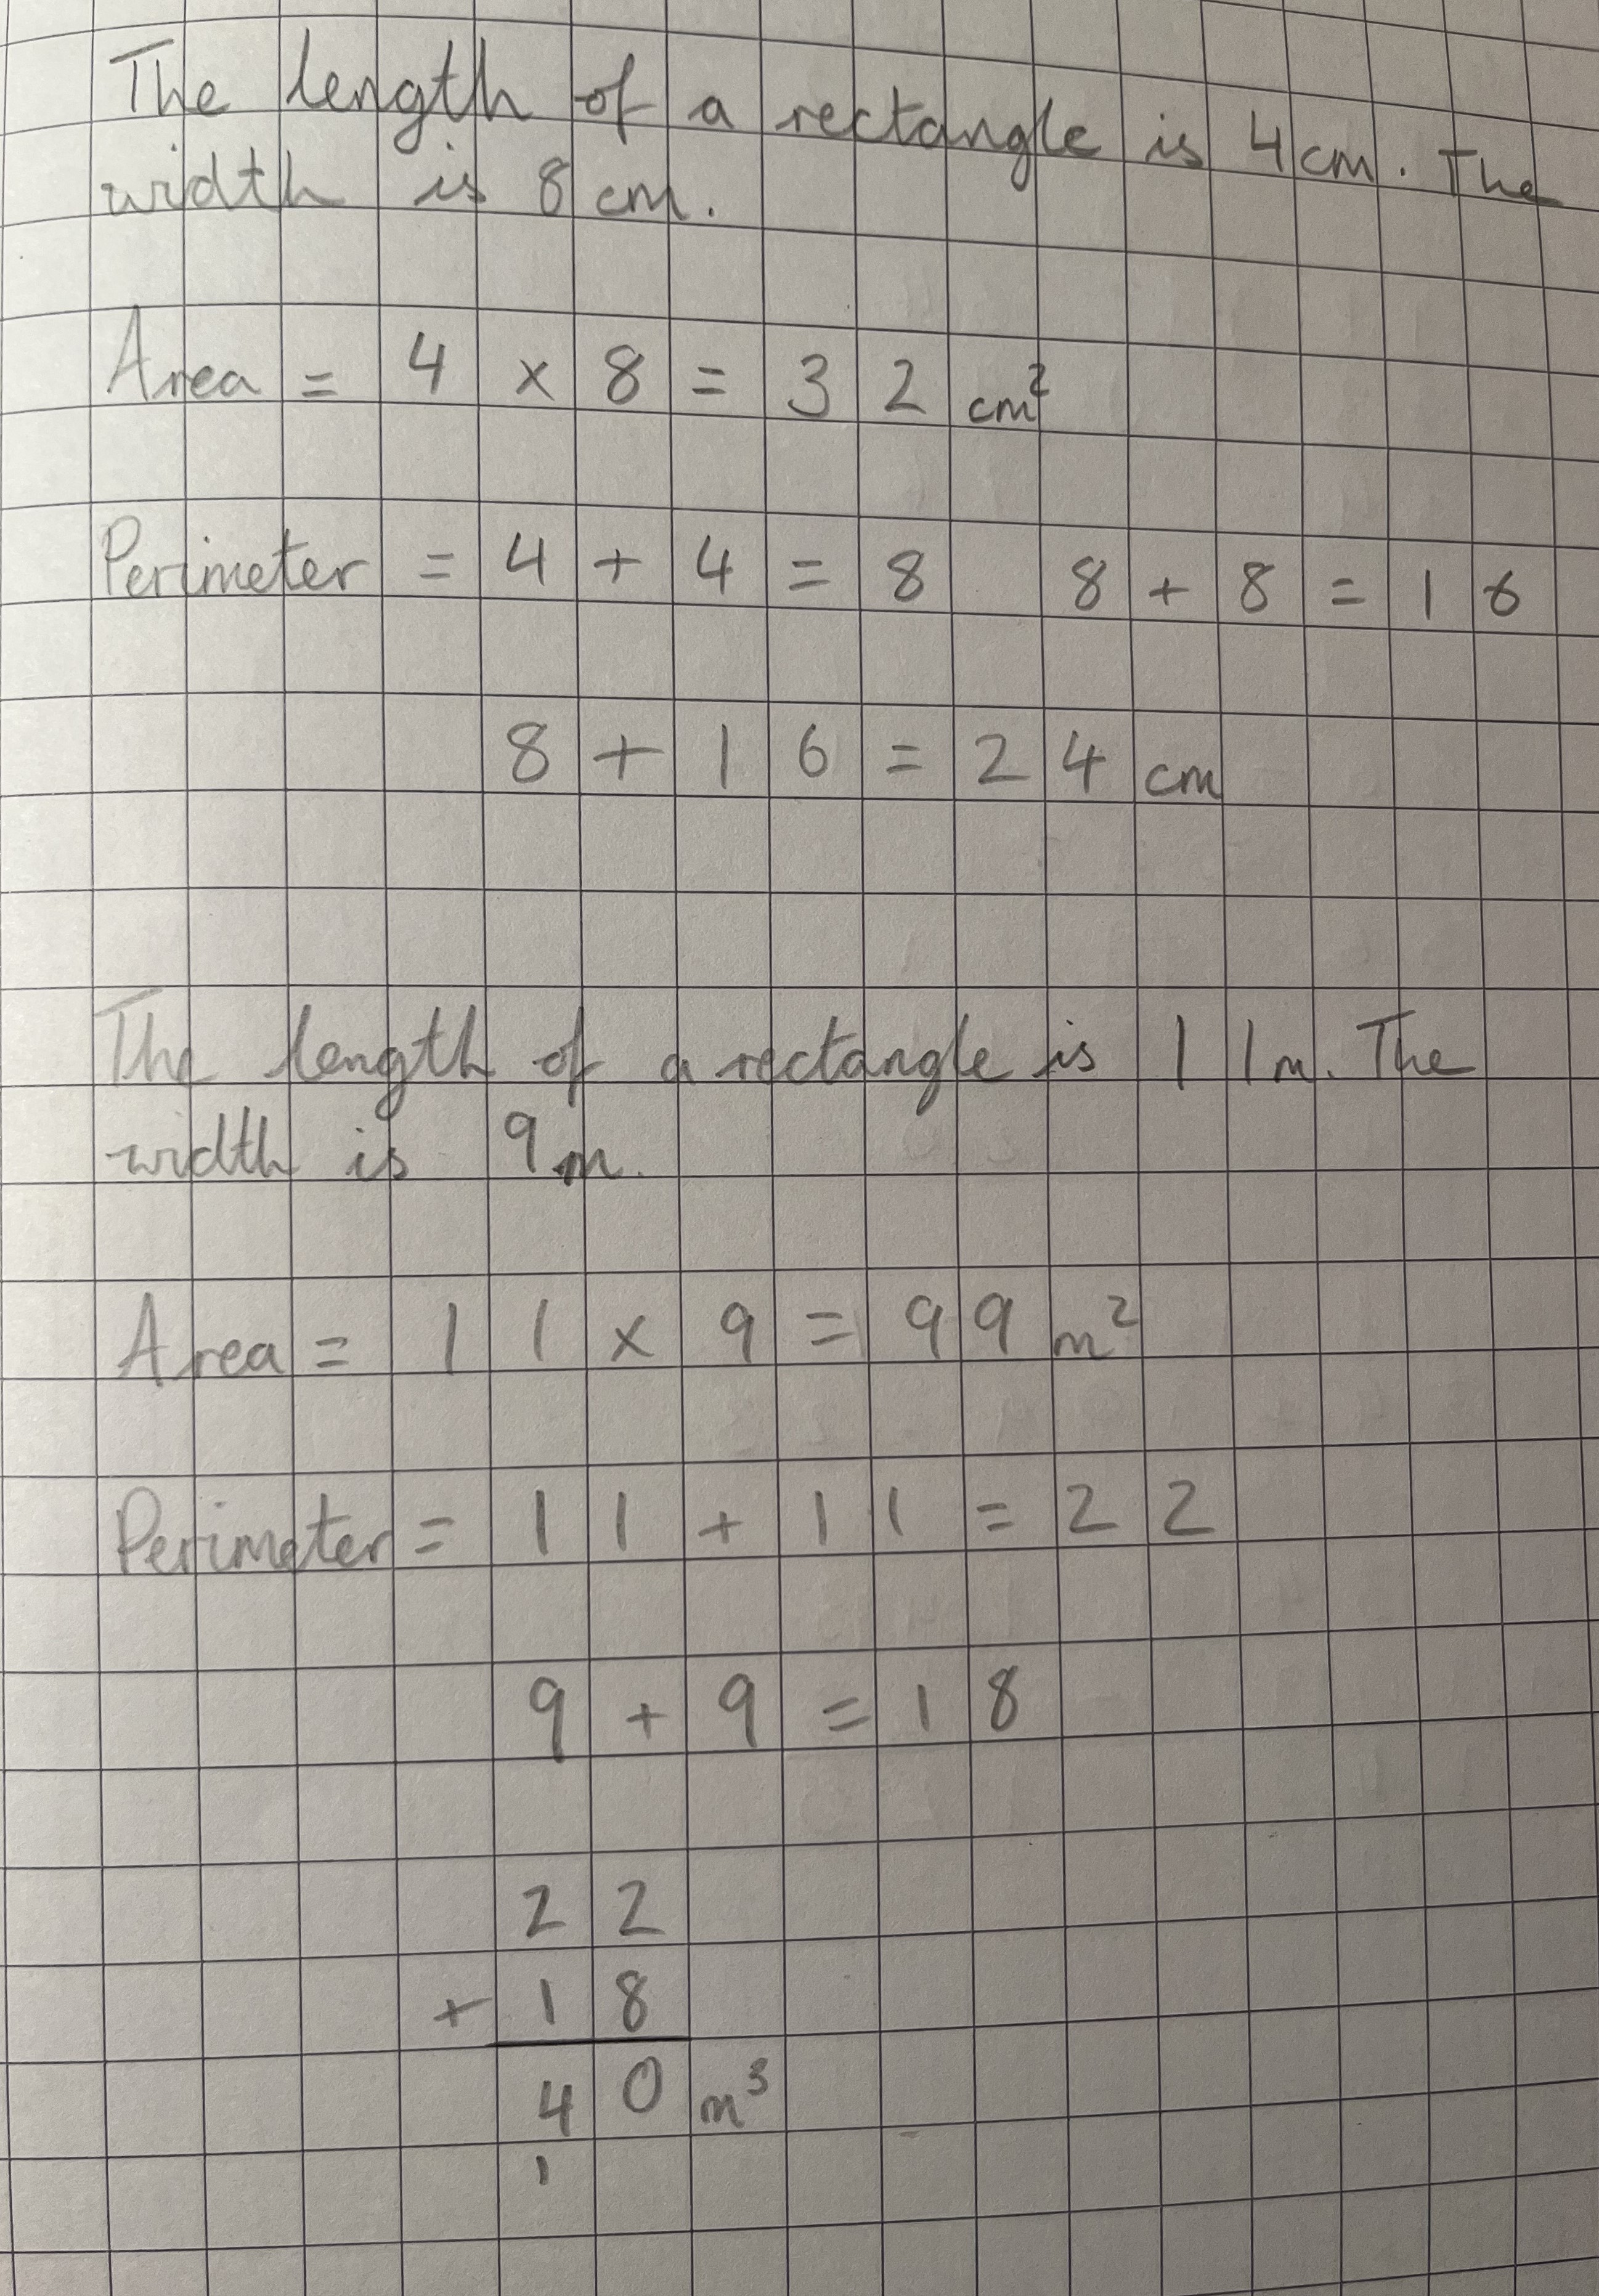 The length of a rectangle is 4cm. The
width is 8cm.
Area = 4 × 8 = 32 cm²
Perimeter = 4 + 4 = 8 8 + 8 = 16
8 + 16 = 24 cm
The length of a rectangle is 11m. The
width is 9m.
Area = 11 × 9 = 99 m²
Perimeter = 11 + 11 = 22
9 + 9 = 18
22
+ 18
40 m³
1